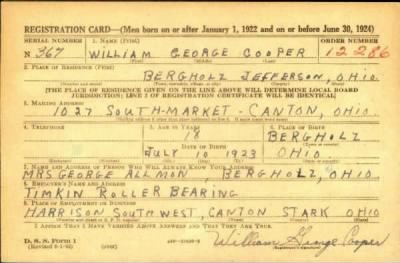 REGISTRATION CARD—(Men born on or after January 1, 1922 and on or before June 30, 1924)
SERIAL NUMBER 1. NAME (Print) ORDER NUMBER
N 367 WILLIAM GEORGE COOPER 12286
(First) (Middle) (Last)
2. PLACE OF RESIDENCE (Print)
BERGHOLZ JEFFERSON, OHIO
[THE PLACE OF RESIDENCE GIVEN ON THE LINE ABOVE WILL DETERMINE LOCAL BOARD
JURISDICTION; LINE 2 OF REGISTRATION CERTIFICATE WILL BE IDENTICAL]
3. MAILING ADDRESS
1027 SOUTH-MARKET-CANTON, OHIO.
4. TELEPHONE 5. AGE IN YEARS 6. PLACE OF BIRTH
18 BERGHOLZ
DATE OF BIRTH
JULY 10 1923 OHIO
7. NAME AND ADDRESS OF PERSON WHO WILL ALWAYS KNOW YOUR ADDRESS
MRS GEORGE ALLMON, BERGHOLZ, OHIO
8. EMPLOYER'S NAME AND ADDRESS
TIMKIN ROLLER BEARING
9. PLACE OF EMPLOYMENT OR BUSINESS
HARRISON SOUTHWEST, CANTON STARK OHIO
I AFFIRM THAT I HAVE VERIFIED ABOVE ANSWERS AND THAT THEY ARE TRUE.
D. S. S. Form 1
William George Cooper